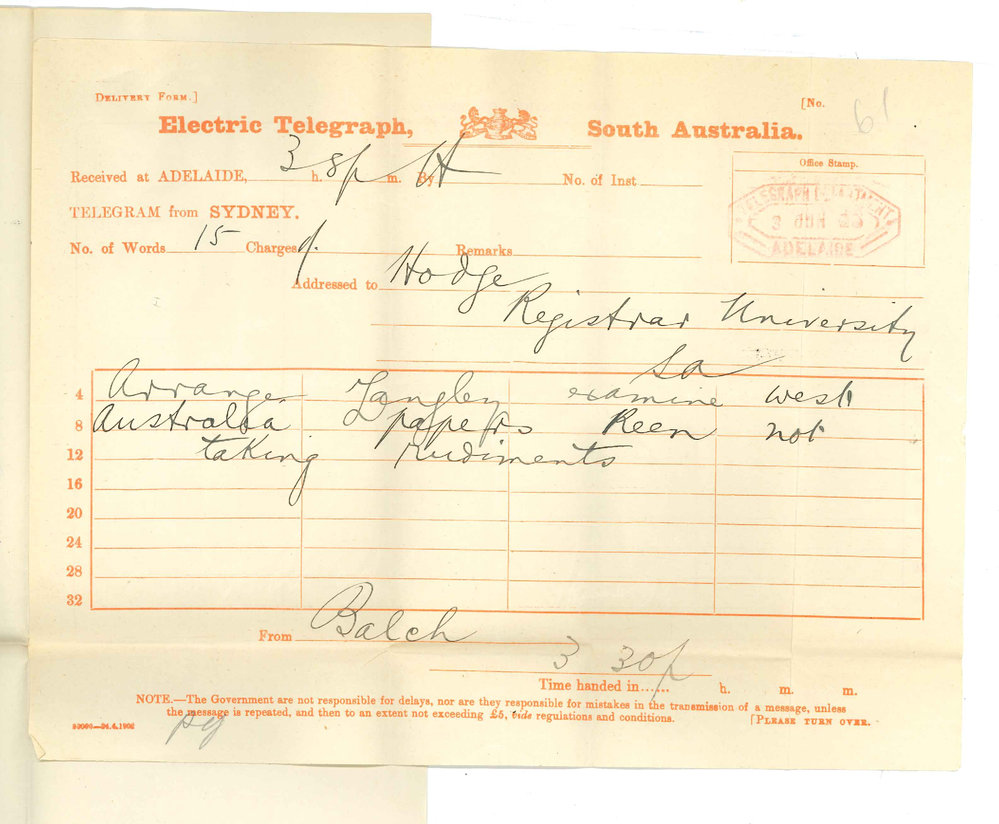 DELIVERY FORM.]
[No. 61
Electric Telegraph, South Australia.
Office Stamp.
Received at ADELAIDE, 3 h. 8p m. By H No. of Inst
TELEGRAPH DEPARTMENT
3 JUN
ADELAIDE
TELEGRAM from SYDNEY.
No. of Words 15 Charges Remarks
Addressed to Hodge
Registrar University
SA
4 Arrange Langley examine west
8 Australia papers Keen not
12 taking rudiments
16
20
24
28
32
From Balch
3 30p
Time handed in...... h. m. m.
NOTE.—The Government are not responsible for delays, nor are they responsible for mistakes in the transmission of a message, unless
the message is repeated, and then to an extent not exceeding £5, vide regulations and conditions. [PLEASE TURN OVER.
24.4.1902
pg